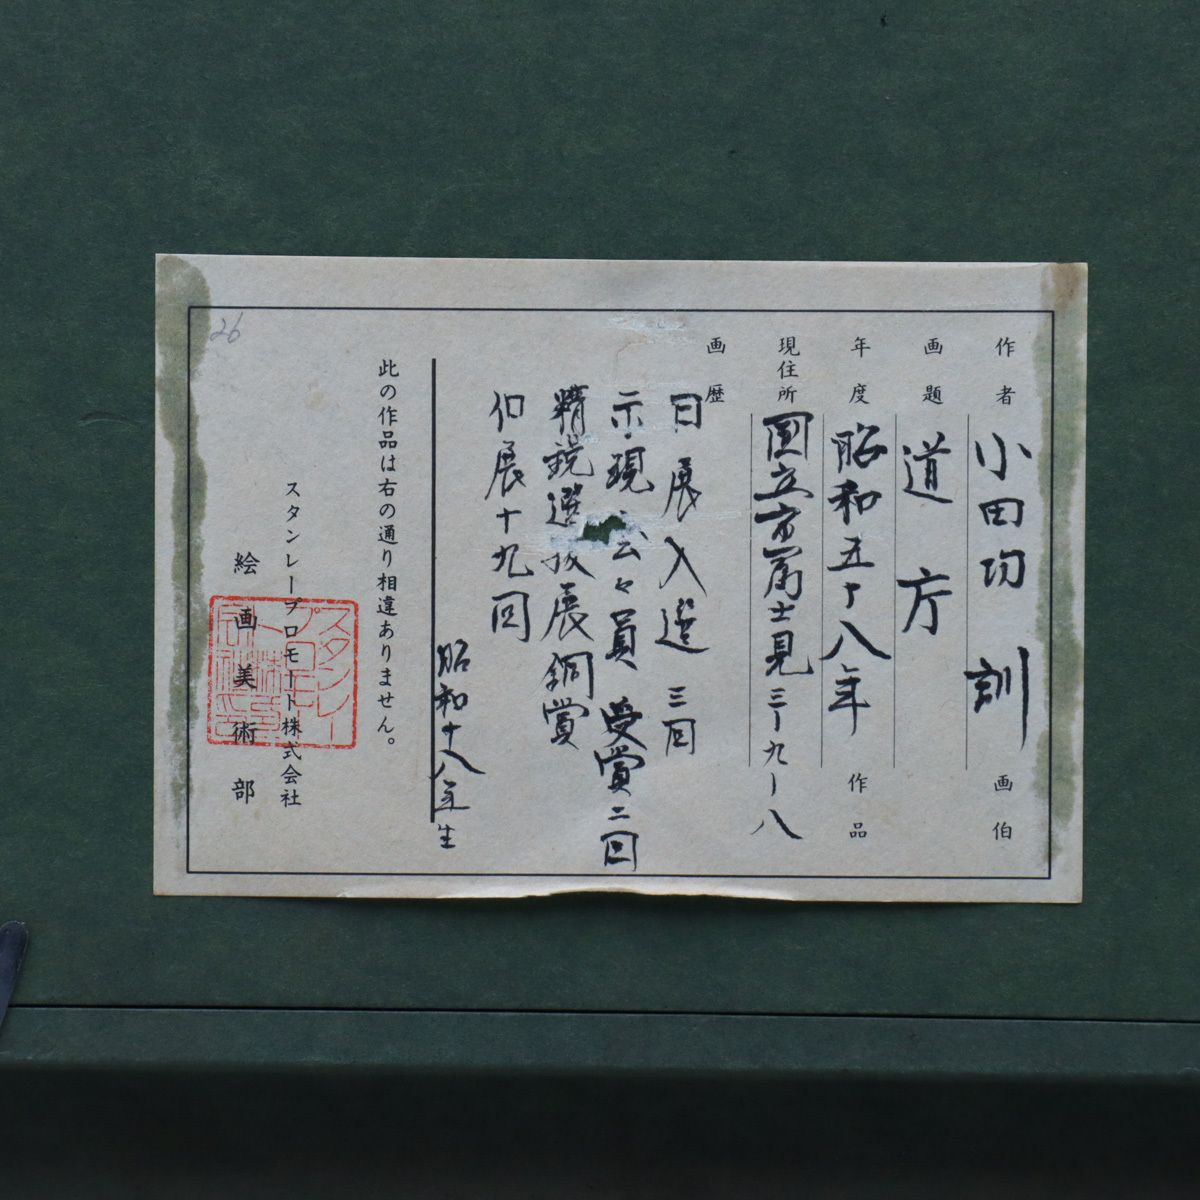 作者 小田切 訓 画伯
画題 道庁
年度 昭和五十八年 作品
現住所 国立市富士見三ー九ー八
画歴
日展入選 三回
示現会々員 受賞二回
精鋭選抜展銅賞
個展十九回
昭和十八年生
此の作品は右の通り相違ありません。
スタンレープロモート株式会社
絵画美術部
26